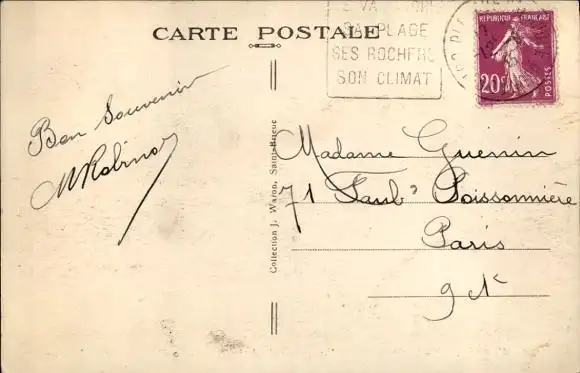 CARTE POSTALE
SA PLAGE
SES ROCHERS
SON CLIMAT
REPUBLIQUE FRANÇAISE
20c
POSTES
Bon Souvenir
Collection J. Waron, Saint-Brieuc
Madame Guenin
71 Faubg Poissonnière
Paris
9e